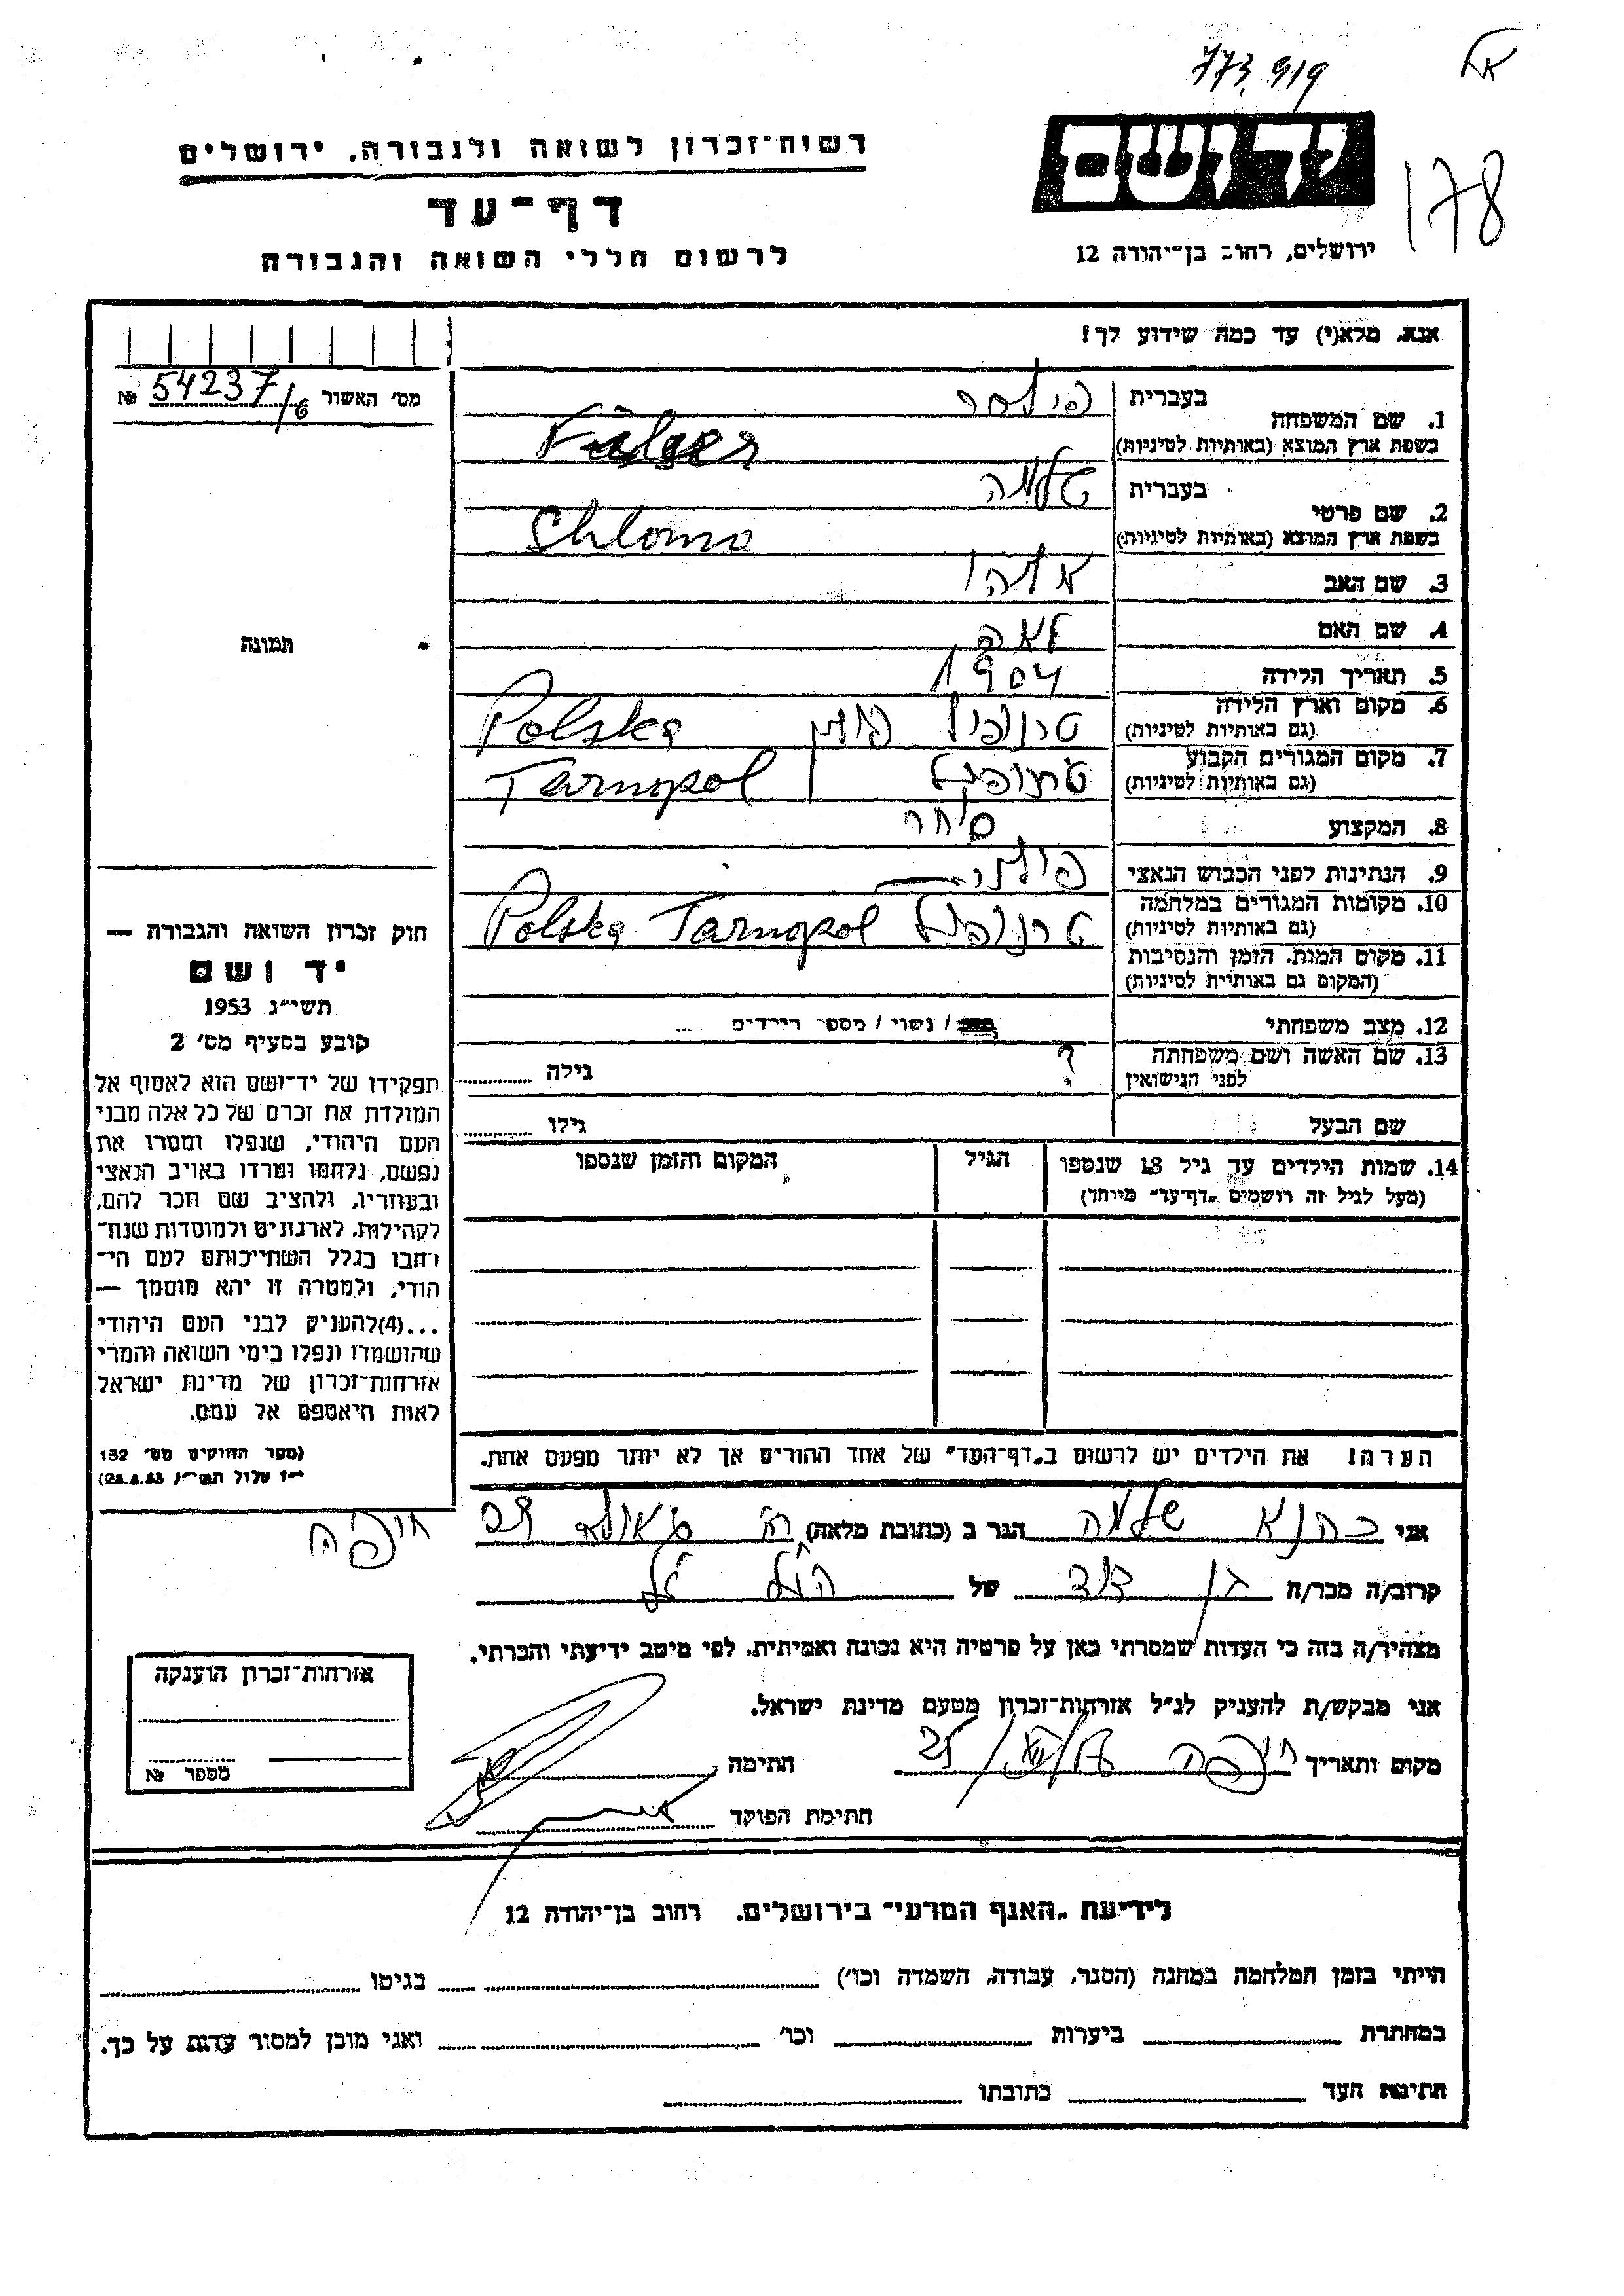 773,919
178
יד ושם
רשות-זכרון לשואה ולגבורה, ירושלים
דף-עד
לרשום חללי השואה והגבורה
ירושלים, רחוב בן-יהודה 12
אנא, מלא(י) עד כמה שידוע לך!
מס' האשור № 54237/6
בעברית
1. שם המשפחה
בשפת ארץ המוצא (באותיות לטיניות)
בעברית שלמה
2. שם פרטי
בשפת ארץ המוצא (באותיות לטיניות) Shlomo
3. שם האב
4. שם האם לאה
5. תאריך הלידה 1904
6. מקום וארץ הלידה טרנופול פולין Polska
(גם באותיות לטיניות)
7. מקום המגורים הקבוע טרנופול Tarnopol
(גם באותיות לטיניות)
8. המקצוע סוחר
9. הנתינות לפני הכבוש הנאצי פולני
10. מקומות המגורים במלחמה טרנופול Polska Tarnopol
(גם באותיות לטיניות)
11. מקום המות, הזמן והנסיבות
(המקום גם באותיות לטיניות)
12. מצב משפחתי / נשוי / מספר הילדים
13. שם האשה ושם משפחתה ? גילה
לפני הנישואין
שם הבעל גילו
14. שמות הילדים עד גיל 18 שנספו הגיל המקום והזמן שנספו
(מעל לגיל זה רושמים "דף-עד" מיוחד)
הערה! את הילדים יש לרשום ב"דף-העד" של אחד ההורים אך לא יותר מפעם אחת.
תמונה
חוק זכרון השואה והגבורה —
יד ושם
תשי"ג 1953
קובע בסעיף מס' 2
תפקידו של יד-ושם הוא לאסוף אל
המולדת את זכרם של כל אלה מבני
העם היהודי, שנפלו ומסרו את
נפשם, נלחמו ומרדו באויב הנאצי
ובעוזריו, ולהציב שם וזכר להם,
לקהילות, לארגונים ולמוסדות שנח-
רבו בגלל השתייכותם לעם הי-
הודי, ולמטרה זו יהא מוסמך —
...(4)להעניק לבני העם היהודי
שהושמדו ונפלו בימי השואה והמרי
אזרחות-זכרון של מדינת ישראל
לאות היאספם אל עמם.
(ספר החוקים מס' 132
י"ז אלול תשי"ג 28.8.53)
אני כהנא שלמה הגר ב (כתובת מלאה) רח' גאולה חיפה
קרוב/ה מכר/ה בן דוד של הנ"ל
מצהיר/ה בזה כי העדות שמסרתי כאן על פרטיה היא נכונה ואמיתית, לפי מיטב ידיעתי והכרתי.
אני מבקש/ת להעניק לנ"ל אזרחות-זכרון מטעם מדינת ישראל.
מקום ותאריך חיפה חתימה
חתימת הפוקד
אזרחות-זכרון הוענקה
מספר №
לידיעת "האגף המדעי" בירושלים, רחוב בן-יהודה 12
הייתי בזמן המלחמה במחנה (הסגר, עבודה, השמדה וכו') בגיטו
במחתרת ביערות וכו' ואני מוכן למסור עדות על כך.
חתימת העד כתובתו